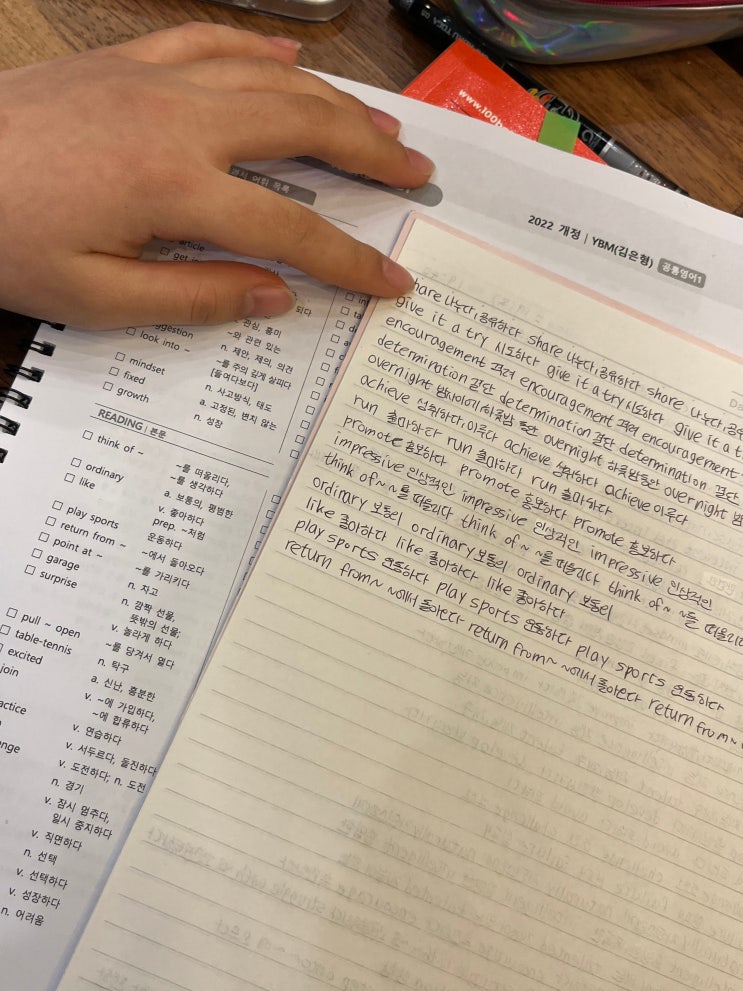 www.100b
2022 개정 | YBM(김은형) 공통영어1
어휘 목록
article
되다
관심, 흥미
ggestion ~와 관련 있는
look into ~ n. 제안, 제의, 의견
~를 주의 깊게 살피다
[들여다보다]
mindset n. 사고방식, 태도
fixed a. 고정된, 변치 않는
growth n. 성장
READING | 본문
think of ~ ~를 떠올리다,
~를 생각하다
ordinary a. 보통의, 평범한
like v. 좋아하다
prep. ~처럼
play sports 운동하다
return from ~ ~에서 돌아오다
point at ~ ~를 가리키다
garage n. 차고
surprise n. 깜짝 선물,
뜻밖의 선물;
v. 놀라게 하다
pull ~ open ~를 당겨서 열다
table-tennis n. 탁구
excited a. 신난, 흥분한
join v. ~에 가입하다,
~에 합류하다
actice v. 연습하다
v. 서두르다, 돌진하다
nge v. 도전하다; n. 도전
n. 경기
v. 잠시 멈추다,
일시 중지하다
v. 직면하다
n. 선택
v. 선택하다
v. 성장하다
n. 어려움
share 나누다, 공유하다 share 나누다, 공유하다 share 나누다, 공유
give it a try 시도하다 give it a try 시도하다 give it a t
encouragement 격려 encouragement 격려 encouragement
determination 결단 determination 결단 determination 결단
overnight 밤사이에, 하룻밤 동안 overnight 하룻밤동안 overnight 밤
achieve 성취하다, 이루다 achieve 성취하다 achieve 이루다
run 출마하다 run 출마하다 run 출마하다
promote 홍보하다 promote 홍보하다 promote 홍보하다
impressive 인상적인 impressive 인상적인 impressive 인상적인
think of~ ~를 떠올리다 think of~ ~를 떠올리다 think of~ ~를 떠올리다
ordinary 보통의 ordinary 보통의 ordinary 보통의
like 좋아하다 like 좋아하다 like 좋아하다
play sports 운동하다 play sports 운동하다 play sports 운동하다
return from~ ~에서 돌아온다 return from~ ~에서 돌아온다 return from~